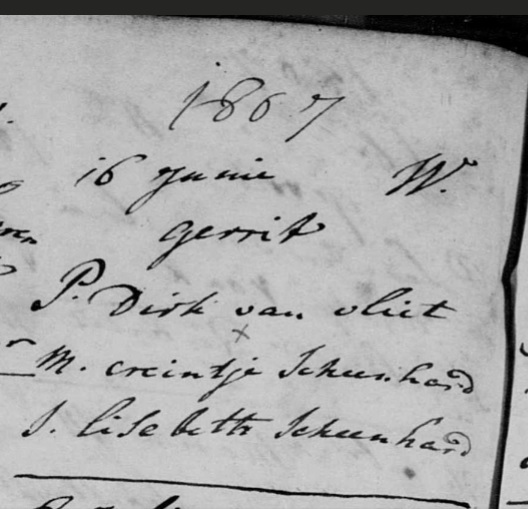 1807
16 Junie W.
gerrit
P. Dirk van vliet
x
M. creintje Scheenhard
S. lisebetth Scheenhard